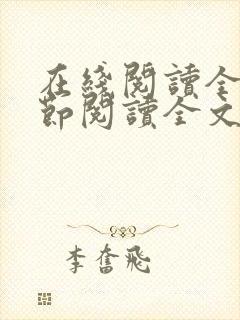 在綫閱讀全
節閱讀全文
李奮飛